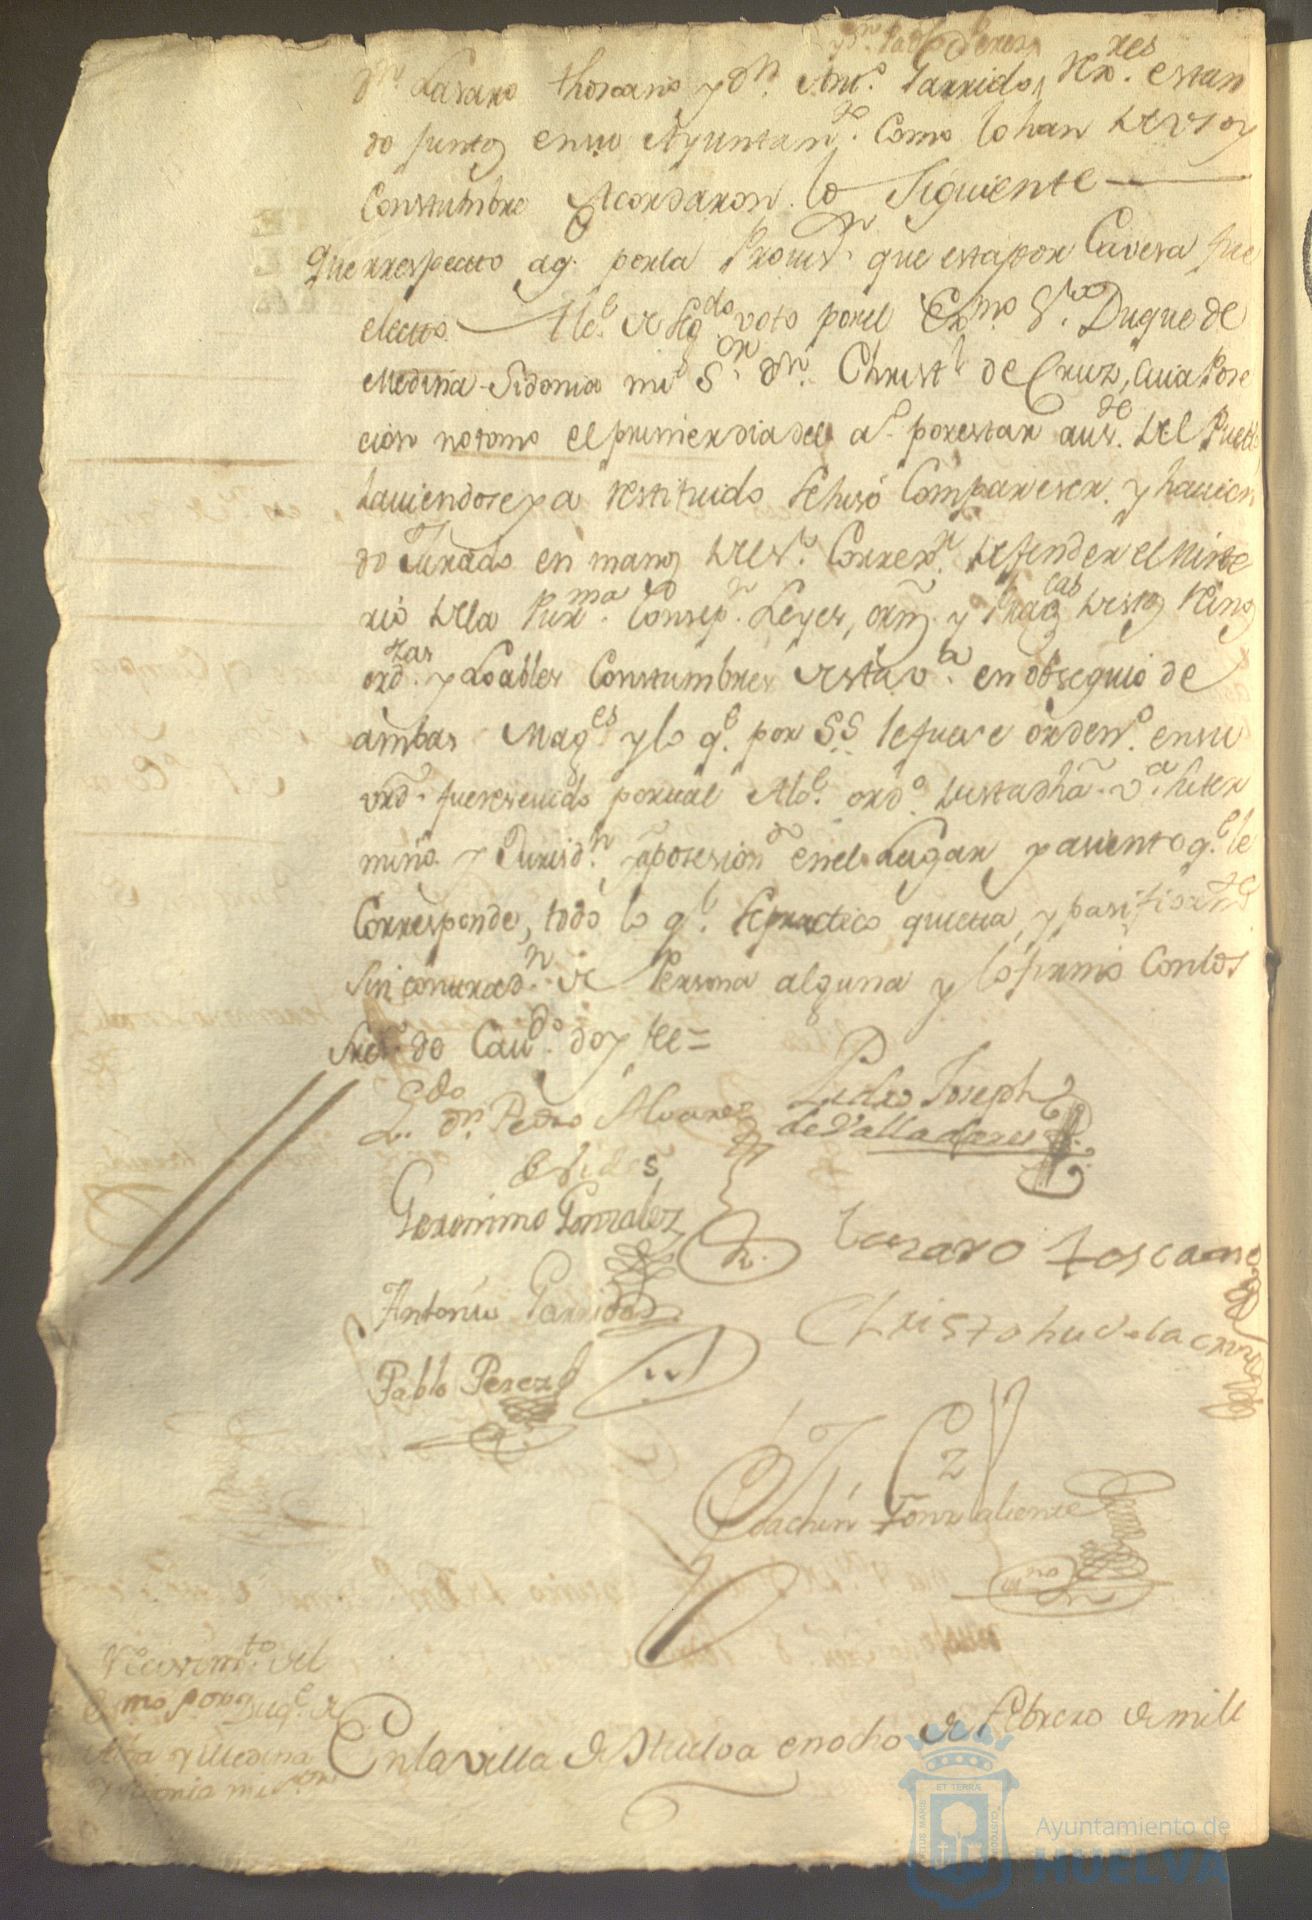 y dn Pablo Perez
dn Lasaro thoscano y dn. Anto. Garrido, rexres. estan
do juntos en su Ayuntamto. Como lo han de vso y
Constumbre Acordaron lo Siguiente
Que rrespecto aq. por la Provisn. que esta por Cavesa fue
electo Alce. de segdo voto por el Exmo Sr. Duque de
Medina Sidonia mi Sor. dn. Christl de Cruz, cuia Pose
cion no tomo el primer dia del a. por estar ausde. del Pueblo
haviendose ya restituido se hiso Compareser. y havien
do Jurado en manos del Sr. Correxr. defender el Miste
rio de la Purma. Consepn. Leyes, orns. y Pragcas destos Reinos
ordzas. y Loables Constumbres de esta va. en obsequio de
ambas Mages y lo qe. por SS. le fuese ordeno. en su
vrd. fue resevido por tal Alce. ordo. desta dha. va. su ter
mino y Jurisdn. y aposesiondo en el Lugar y asiento qe. le
Corresponde, todo lo qe. se practico quieta y pasificamte
Sin contradn. de Persona alguna y lo firmo con los
Sres. de Cavdo. doy fee=
Ldo. dn. Pedro Alvarez
Pedro Joseph
de Valladares
Geronimo Gonzalez
Lazaro toscano
Antonio Garrido
Christobal de la Cruz
Pablo Perez
Joachin Fonz aliente
esno
Recivimto. del
Exmo Sor Duqe. de
Alba y Medina
Sidonia mi Sor
En la villa de Huelva en ocho de febrero de mill
ET TERRÆ
PORTUS MARIS
CUSTODIA
Ayuntamiento de
HUELVA